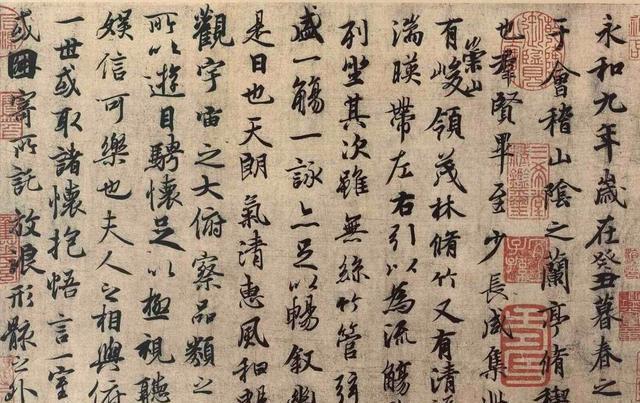 永和九年歲在癸丑暮春之
于會稽山陰之蘭亭脩禊
也羣賢畢至少長咸集此
有崇山峻領茂林脩竹又有清
湍暎帶左右引以為流觴
列坐其次雖無絲竹管弦
盛一觴一詠亦足以暢敘幽
是日也天朗氣清惠風和
觀宇宙之大俯察品類之
所以遊目騁懷足以極視聽
娛信可樂也夫人之相與俯
一世或取諸懷抱悟言一室
或因寄所託放浪形骸之外